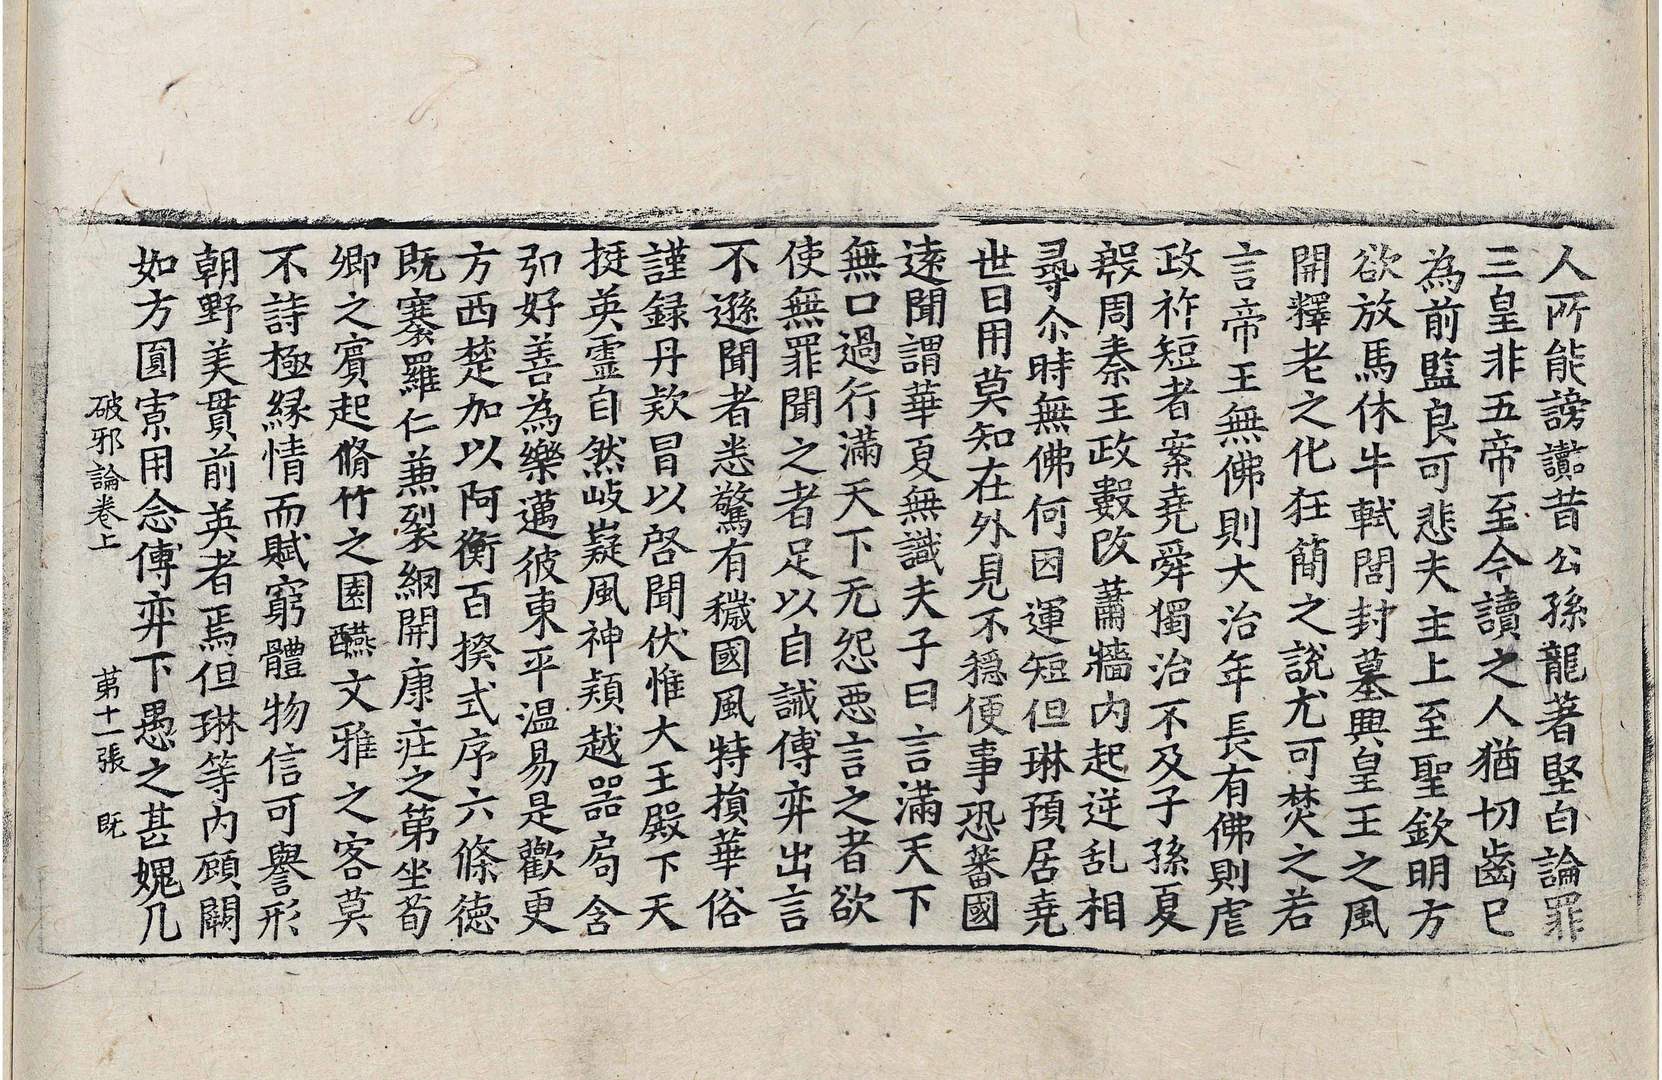 人所能謗讟昔公孫龍著堅白論罪
三皇非五帝至今讀之人猶切齒已
為前監良可悲夫主上至聖欽明方
欲放馬休牛軾閭封墓興皇王之風
開釋老之化狂簡之說尤可焚之若
言帝王無佛則大治年長有佛則虐
政祚短者案堯舜獨治不及子孫夏
殷周秦王政數改蕭牆內起逆乱相
尋尒時無佛何因運短但琳預居堯
世日用莫知在外見不穩便事恐蕃國
遠聞謂華夏無識夫子曰言滿天下
無口過行滿天下无怨惡言之者欲
使無罪聞之者足以自誡傅弈出言
不遜聞者悉驚有穢國風特損華俗
謹録丹欵冒以啓聞伏惟大王殿下天
挺英靈自然岐嶷風神頴越器局含
弘好善為樂邁彼東平温易是歡更
方西楚加以阿衡百揆式序六條德
既褰羅仁兼裂網開康莊之第坐荀
卿之賓起脩竹之園醼文雅之客莫
不詩極緣情而賦窮體物信可譽形
朝野美貫前英者焉但琳等內顧闕
如方圓寡用念傅弈下愚之甚媿凡
破邪論卷上 苐十一張 既